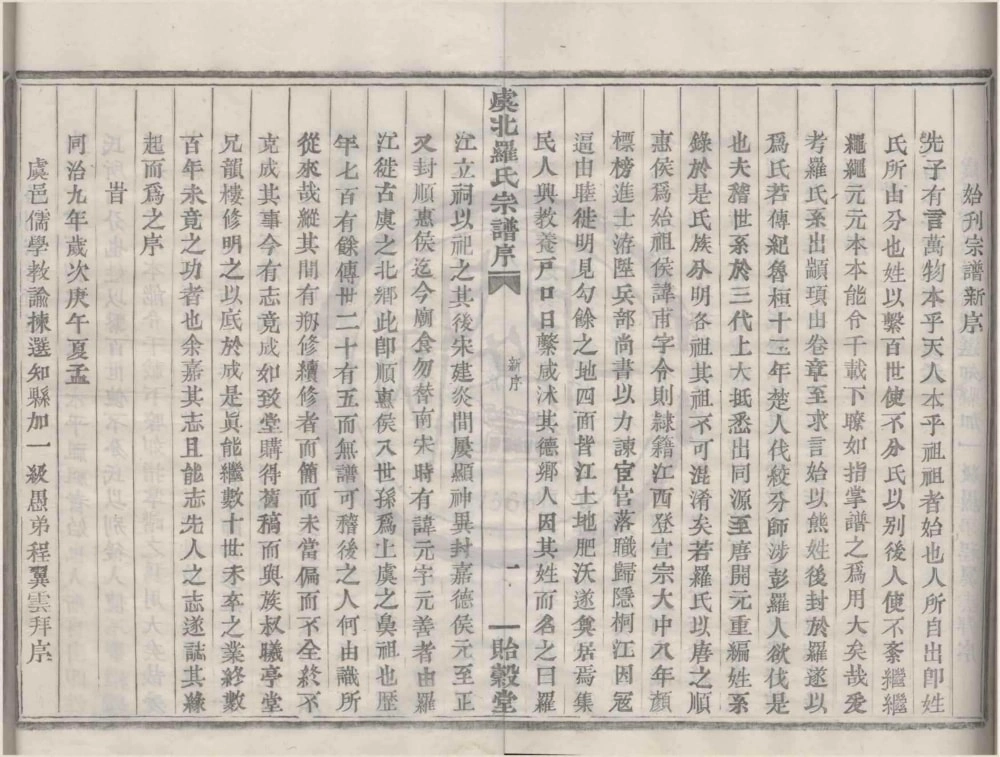 始刊宗譜新序
先子有言萬物本乎天人本乎祖祖者始也人所自出卽姓
氏所由分也姓以繫百世使不分氏以別後人使不紊繼繼
繩繩元元本本能令千載下瞭如指掌譜之爲用大矣哉爰
考羅氏系出顓頊由卷章至求言始以熊姓後封於羅遂以
爲氏若傳紀魯桓十二年楚人伐絞分師涉彭羅人欲伐是
也夫稽世系於三代上大抵悉出同源至唐開元重編姓系
錄於是氏族分明各祖其祖不可混淆矣若羅氏以唐之順
惠侯爲始祖侯諱甫字令則隷籍江西登宣宗大中八年顏
標榜進士游陞兵部尚書以力諫宦官落職歸隱桐江因寇
逼由睦徙明見勾餘之地四面皆江土地肥沃遂奠居焉集
民人興敎養戸口日繫咸沐其德鄉人因其姓而名之曰羅
虞北羅氏宗譜序
新序
一
貽穀堂
江立祠以祀之其後宋建炎間屢顯神異封嘉德侯元至正
又封順惠侯迄今廟食勿替南宋時有諱元字元善者由羅
江徙古虞之北鄉此卽順惠侯八世孫爲上虞之鼻祖也歷
年七百有餘傳世二十有五而無譜可稽後之人何由識所
從來哉縱其間有剏修續修者而簡而未當偏而不全終不
克成其事今有志竟成如致堂購得舊稿而與族叔曦亭堂
兄韻樓修明之以底於成是眞能繼數十世未卒之業終數
百年未竟之功者也余嘉其志且能志先人之志遂誌其緣
起而爲之序
旹
同治九年歲次庚午夏孟
虞邑儒學敎諭揀選知縣加一級愚弟程翼雲拜序